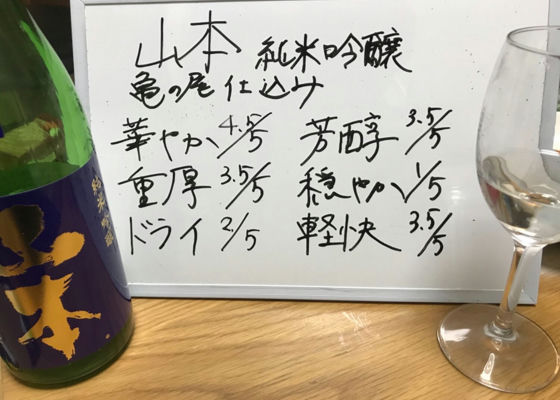 山本 純米吟醸
亀の尾仕込み
華やか 4.5/5 芳醇 3.5/5
重厚 3.5/5 穏やか 1/5
ドライ 2/5 軽快 3.5/5
純米吟醸
山本